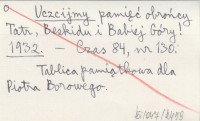 Uczcijmy pamięć obrońcy
Tatr, Beskidu i Babiej Góry!
1932. — Czas 84, nr 130.
Tablica pamiątkowa dla
Piotra Borowego.